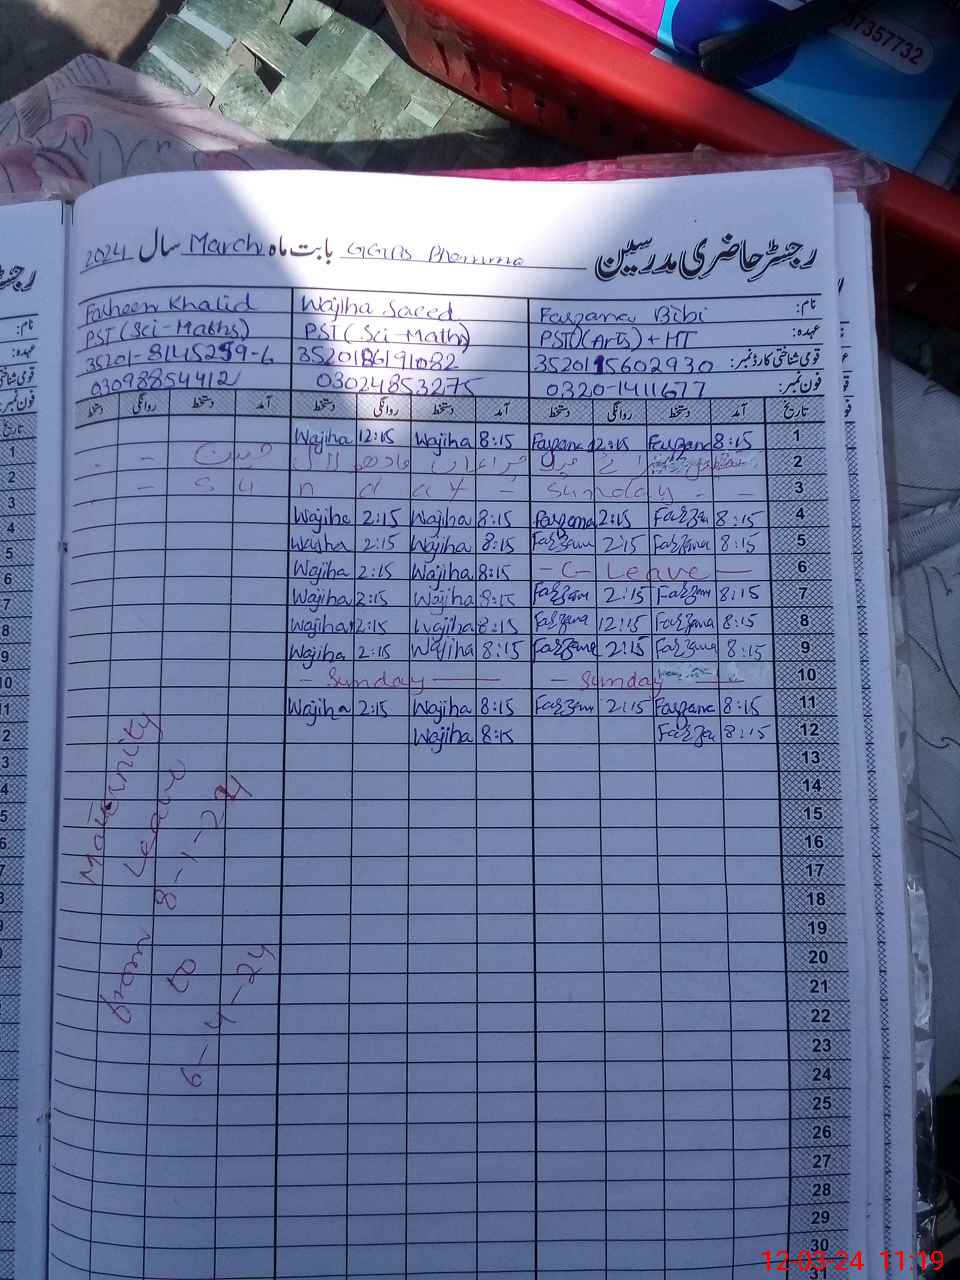 37357732
رجسٹر حاضری مدرسین GGPS Bhamma بابت ماہ March سال 2024
نام: Farzana Bibi Wajiha Saeed Farheen Khalid
عہدہ: PST(Arts)+HT PST(Sci-Maths) PST(Sci-Maths)
قومی شناختی کارڈ نمبر: 3520115602930 3520186191082 35201-8145259-6
فون نمبر: 0320-1411677 03024853275 03098854412
تاریخ آمد دستخط روانگی دستخط آمد دستخط روانگی دستخط آمد دستخط روانگی دستخط
1 8:15 Farzana 12:15 Farzana 8:15 Wajiha 12:15 Wajiha
2
3 - - Sunday - Sunday -
4 8:15 Farzan 2:15 Farzana 8:15 Wajiha 2:15 Wajiha
5 8:15 Farzana 2:15 Farzana 8:15 Wajiha 2:15 Wajiha
6 - C- Leave - 8:15 Wajiha 2:15 Wajiha
7 8:15 Farzana 2:15 Farzana 8:15 Wajiha 2:15 Wajiha
8 8:15 Farzana 12:15 Farzana 8:15 Wajiha 12:15 Wajiha
9 8:15 Farzana 2:15 Farzana 8:15 Wajiha 2:15 Wajiha
10 - Sunday - Sunday -
11 8:15 Farzana 2:15 Farzana 8:15 Wajiha 2:15 Wajiha
12 8:15 Farzan 8:15 Wajiha
13
14
15
16
17
18
19
20
21
22
23
24
25
26
27
28
29
30
31
Maternity
Leave
from 8-1-24
to
6-4-24
12-03-24 11:19